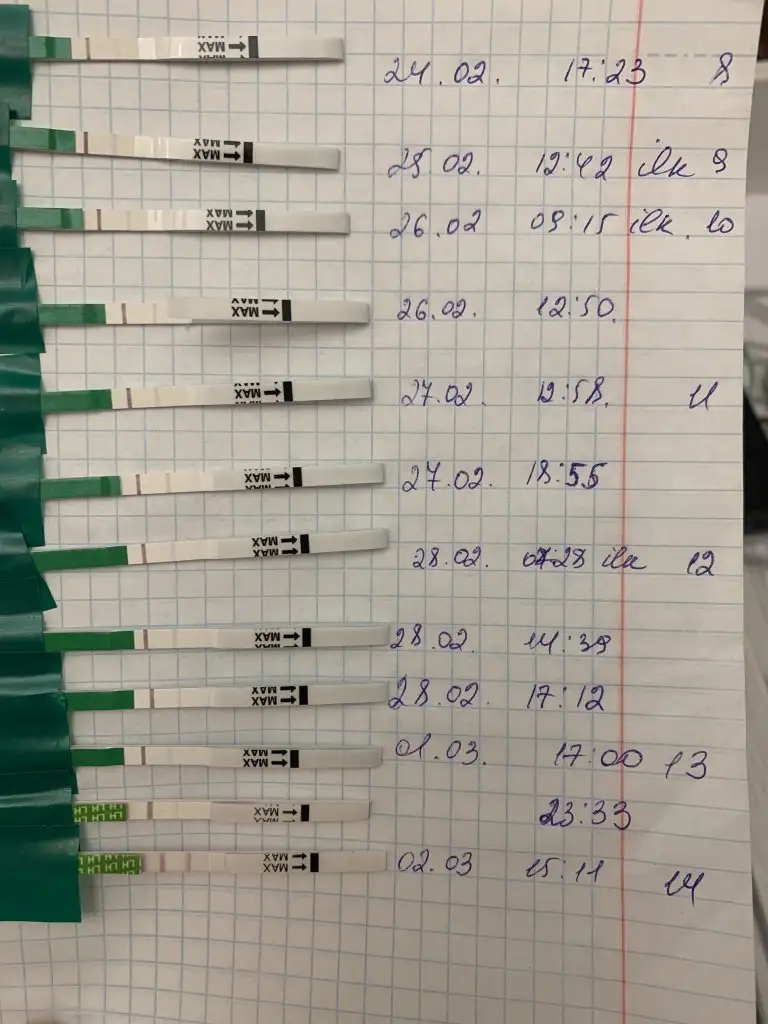 MAX 24.02. 17:23 8
MAX MAX 25.02. 12:42 ilk 9
MAX MAX 26.02 09:15 ilk. 10
MAX 26.02. 12:50.
MAX 27.02. 12:58. 11
MAX 27.02. 18:55
MAX MAX 28.02. 28 ilk 12
MAX 28.02. 14:39
MAX MAX 28.02. 17:12
MAX MAX 01.03. 17:00 13
LH LH LH MAX 23:33
LH LH LH MAX MAX 02.03 15:11 14